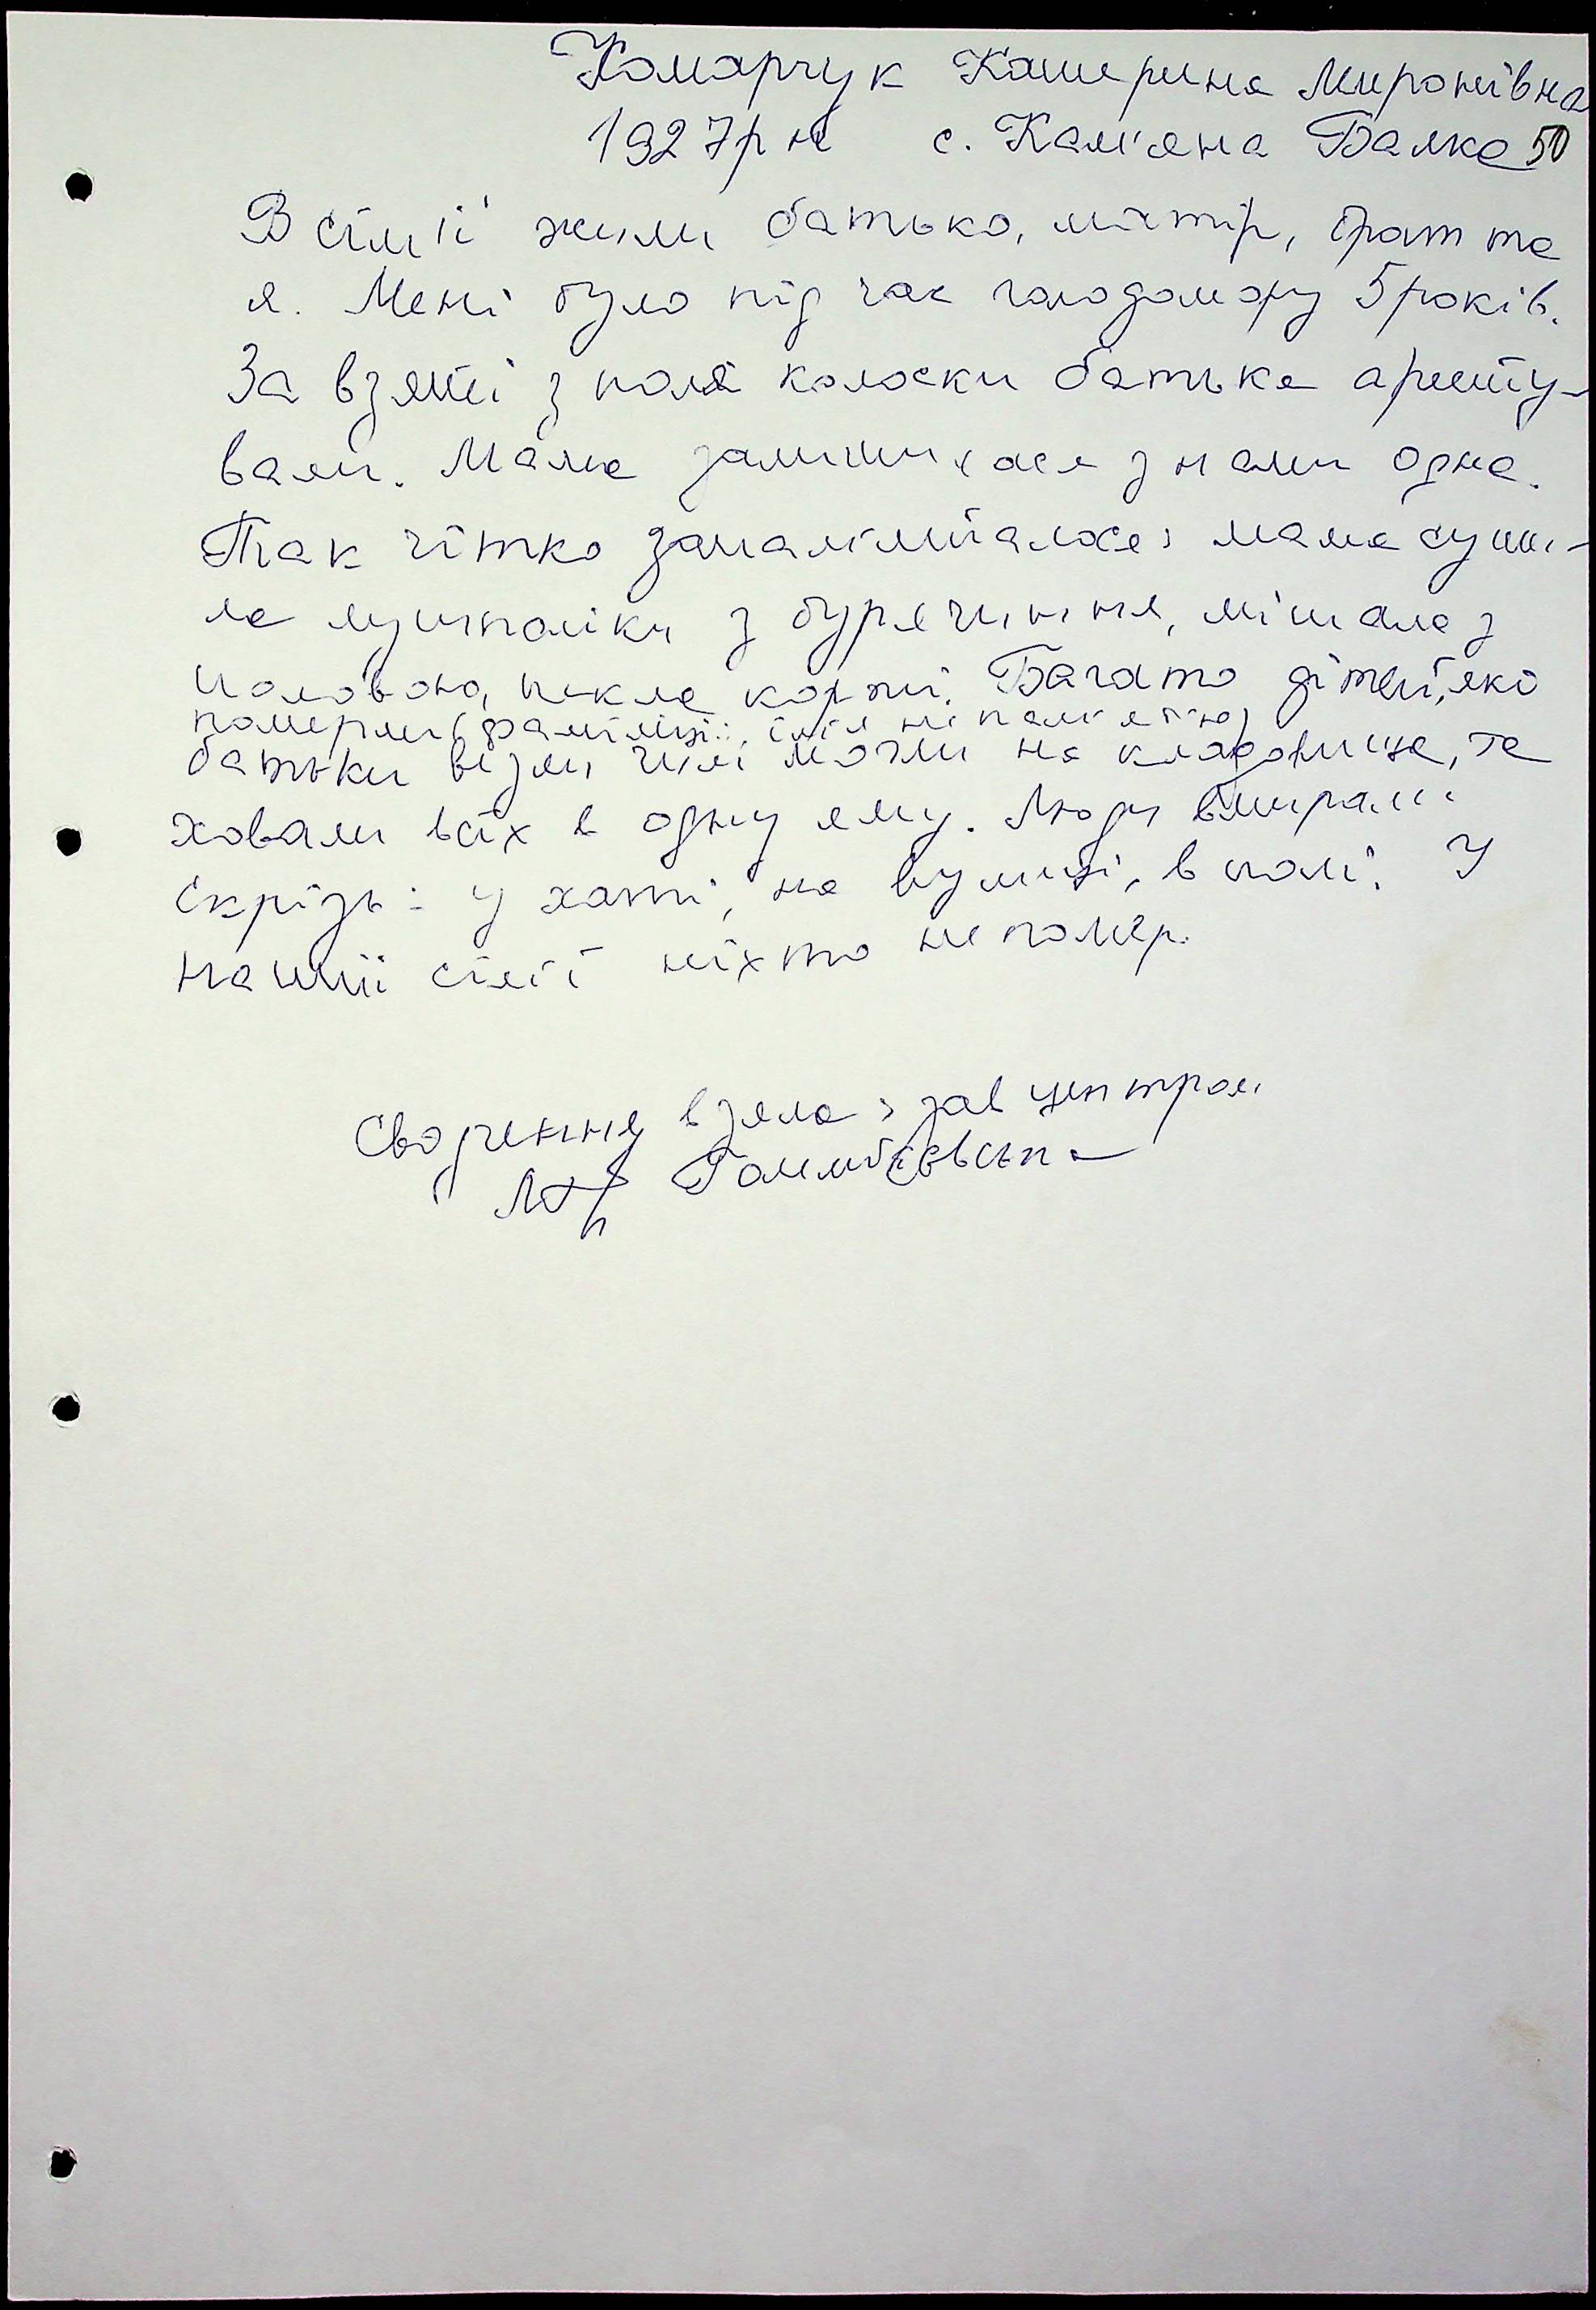 Комарчук Катерина Миронівна
1927р н с. Кам'яна Балка 50
В сім'ї жили батько, матір, брат та
я. Мені було під час голодомору 5 років.
За взяті з поля колоски батька арешту-
вали. Мама залишилася з нами одна.
Так чітко запам'яталося: мама суши-
ла лушпайки з бурячиння, мішала з
половою, пекла коржі. Багато дітей, які
померли (фамілії, ім'я не пам'ятаю)
батьки везли чим могли на кладовище, та
ховали всіх в одну яму. Люди вмирали
скрізь: у хаті, на вулиці, в полі. У
нашій сім'ї ніхто не помер.
Свідчення взяла: зав центром